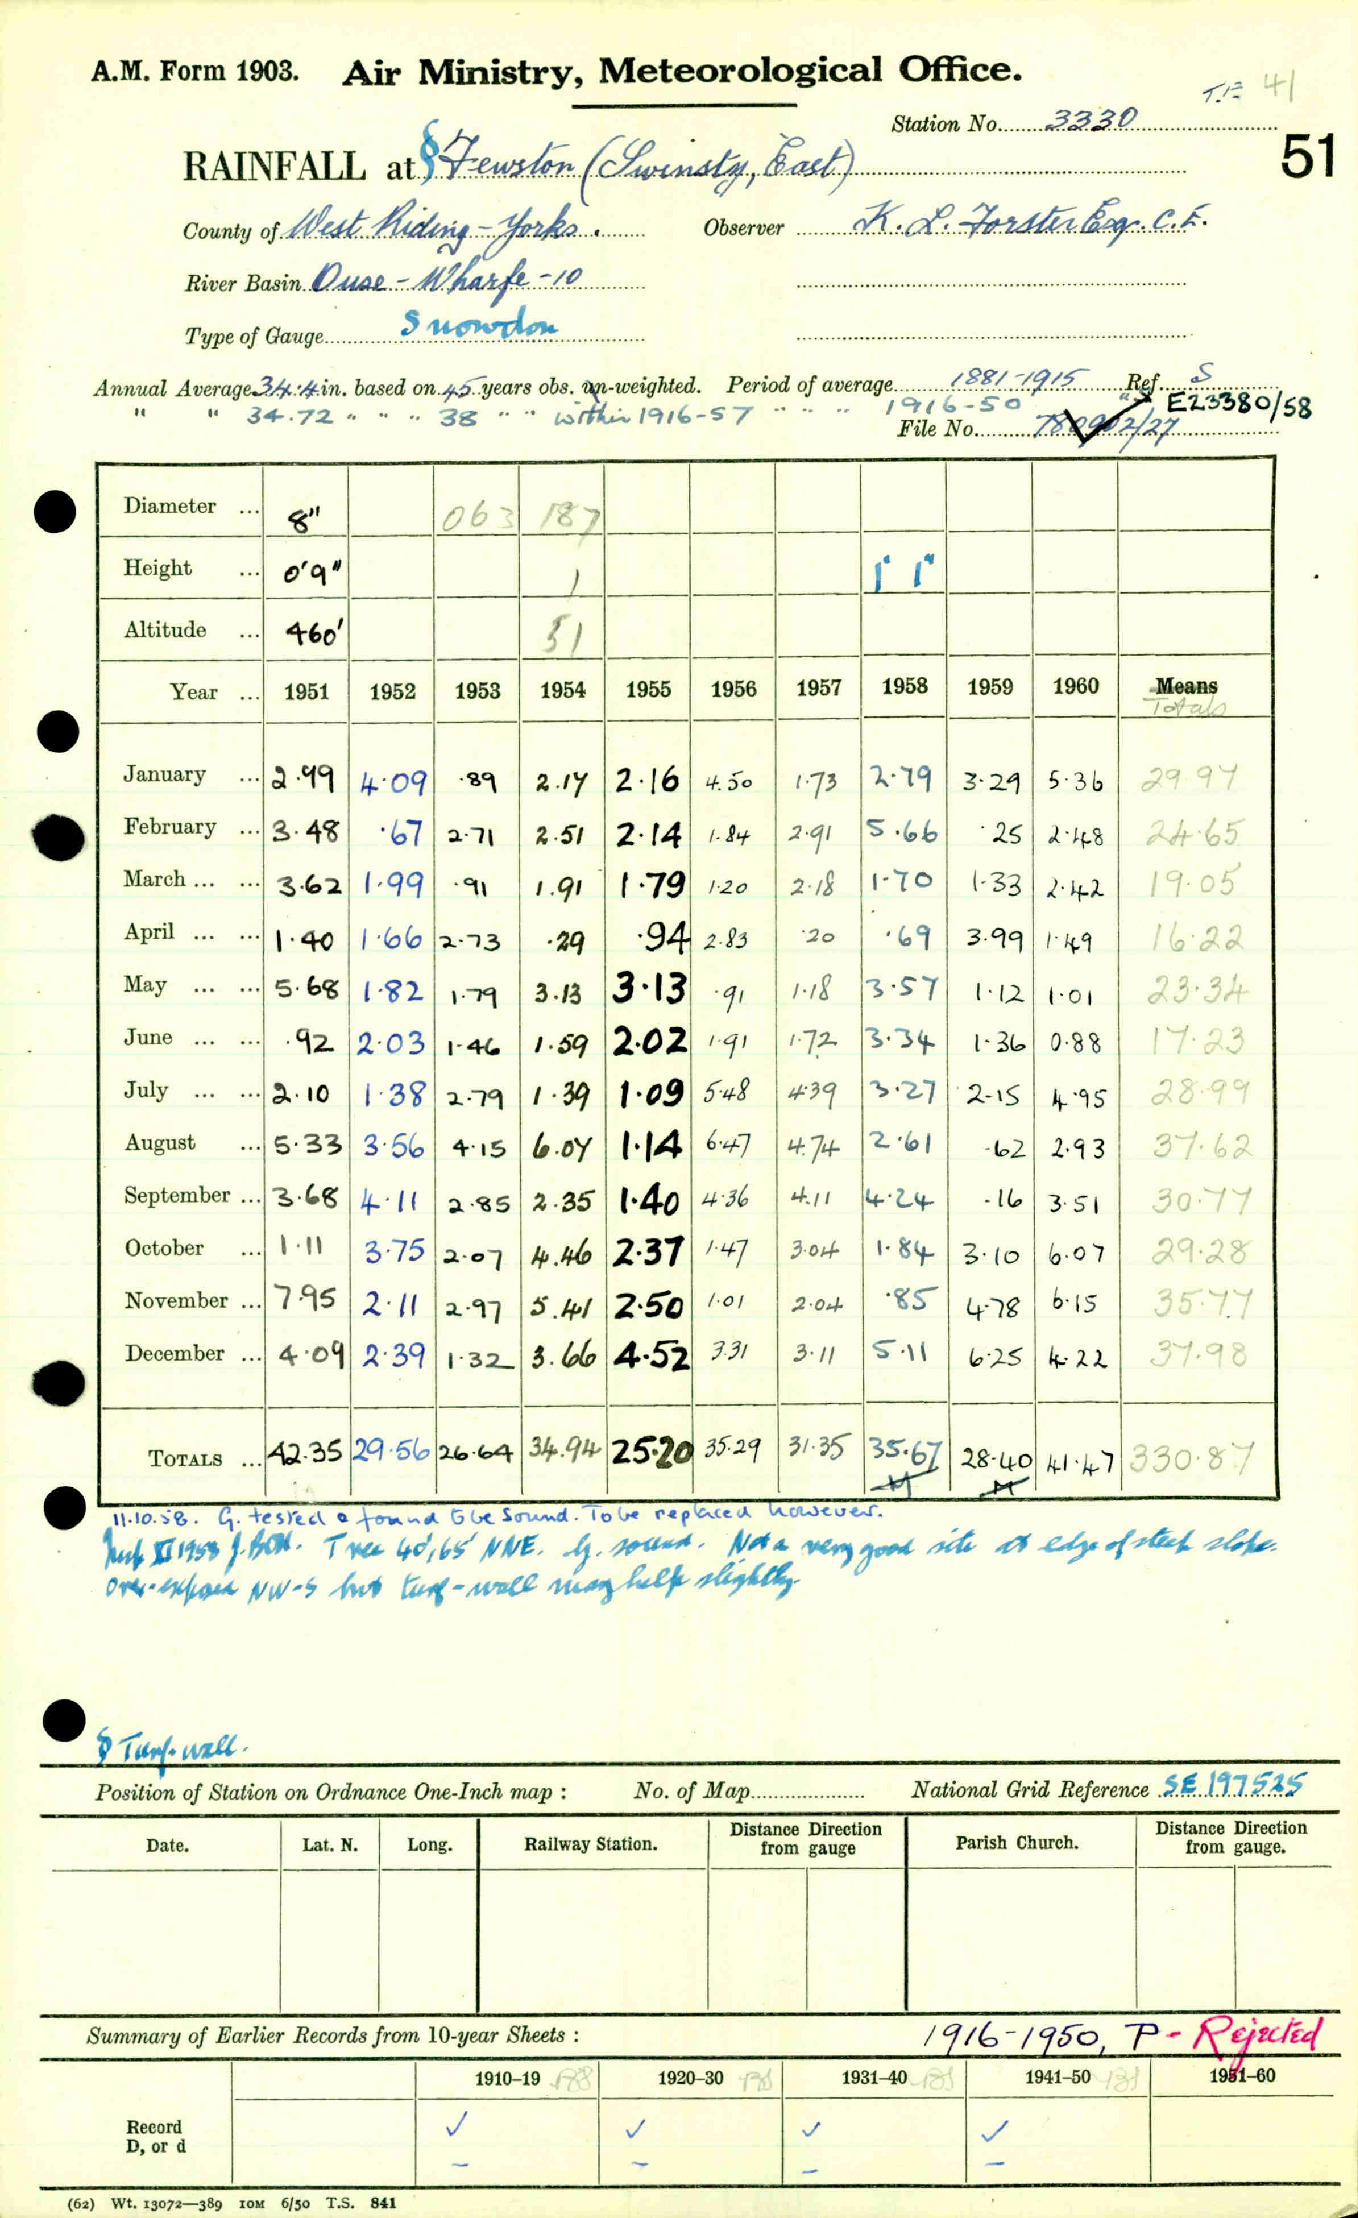 A.M. Form 1903. Air Ministry, Meteorological Office.
T.F. 41
Station No. 3330
51
RAINFALL at § Fewston (Swinsty, East)
County of West Riding - Yorks. Observer K. L. Forster Esq. C.E.
River Basin Ouse - Wharfe - 10
Type of Gauge Snowdon
Annual Average 34.4 in. based on 45 years obs. un-weighted. Period of average 1881-1915 Ref. S
" " 34.72 " " " 38 " " within 1916-57 " " " 1916-50 " E23380/58
File No. 780902/27
Diameter ... 8" 063 187
Height ... 0'9" 1 1' 1"
Altitude ... 460' 51
Year ... 1951 1952 1953 1954 1955 1956 1957 1958 1959 1960 Means
Totals
January ... 2.99 4.09 .89 2.17 2.16 4.50 1.73 2.79 3.29 5.36 29.97
February ... 3.48 .67 2.71 2.51 2.14 1.84 2.91 5.66 .25 2.48 24.65
March ... ... 3.62 1.99 .91 1.91 1.79 1.20 2.18 1.70 1.33 2.42 19.05
April ... ... 1.40 1.66 2.73 .29 .94 2.83 .20 .69 3.99 1.49 16.22
May ... ... 5.68 1.82 1.79 3.13 3.13 .91 1.18 3.57 1.12 1.01 23.34
June ... ... .92 2.03 1.46 1.59 2.02 1.91 1.72 3.34 1.36 0.88 17.23
July ... ... 2.10 1.38 2.79 1.39 1.09 5.48 4.39 3.27 2.15 4.95 28.99
August ... 5.33 3.56 4.15 6.07 1.14 6.47 4.74 2.61 .62 2.93 37.62
September ... 3.68 4.11 2.85 2.35 1.40 4.36 4.11 4.24 .16 3.51 30.77
October ... 1.11 3.75 2.07 4.46 2.37 1.47 3.04 1.84 3.10 6.07 29.28
November ... 7.95 2.11 2.97 5.41 2.50 1.01 2.04 .85 4.78 6.15 35.77
December ... 4.09 2.39 1.32 3.66 4.52 3.31 3.11 5.11 6.25 4.22 37.98
TOTALS ... 42.35 29.56 26.64 34.94 25.20 35.29 31.35 35.67 28.40 41.47 330.87
11.10.58. G. tested & found to be sound. To be replaced however.
XI 1958 Tree 40', 65' NNE. G. sound. Not a very good site at edge of steep slope.
Over-exposed NW-S but turf-wall may help slightly
§ Turf-wall.
Position of Station on Ordnance One-Inch map : No. of Map National Grid Reference SE 197525
Date. Lat. N. Long. Railway Station. Distance from gauge Direction Parish Church. Distance from gauge. Direction
Summary of Earlier Records from 10-year Sheets : 1916-1950, P - Rejected
1910–19 1920–30 1931–40 1941–50 1951–60
Record ✓ ✓ ✓ ✓
D, or d – – – –
(62) Wt. 13072—389 10M 6/50 T.S. 841